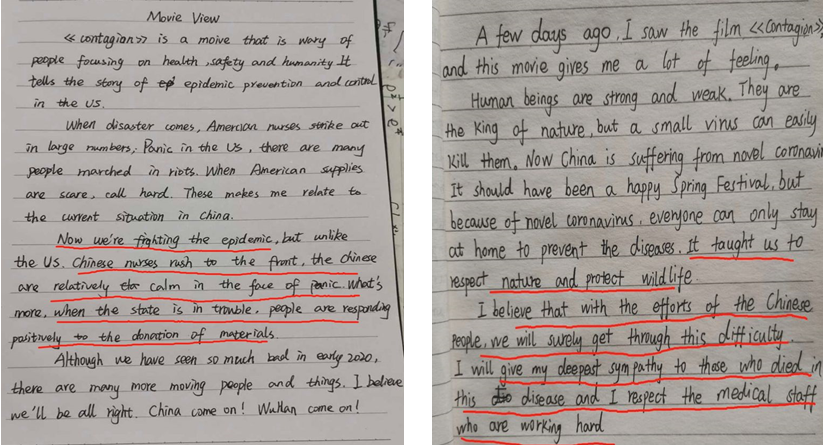 Movie View
<<contagion>> is a moive that is wary of
people focusing on health, safety and humanity It
tells the story of epidemic prevention and control
in the US.
When disaster comes, Amercian nurses strike out
in large numbers; Panic in the US, there are many
people marched in riots. When American supplies
are scare, call hard. These makes me relate to
the current situation in China.
Now we're fighting the epidemic, but unlike
the US. Chinese nurses rush to the front, the chinese
are relatively calm in the face of panic. What's
more, when the state is in trouble, people are responding
positively to the donation of materials.
Although we have seen so much bad in early 2020,
there are many more moving people and things. I believe
we'll be all right. China come on! WuHan come on!
A few days ago, I saw the film <<Contagion>>
and this movie gives me a lot of feeling.
Human beings are strong and weak. They are
the King of nature, but a small virus can easily
kill them. Now China is suffering from novel coronavir
It should have been a happy Spring Festival, but
because of novel coronavirus, everyone can only stay
at home to prevent the diseases. It taught us to
respect nature and protect wildlife
I believe that with the efforts of the Chinese
people, we will surely get through this difficulty.
I will give my deepest sympathy to those who died in
this disease and I respect the medical staff
who are working hard